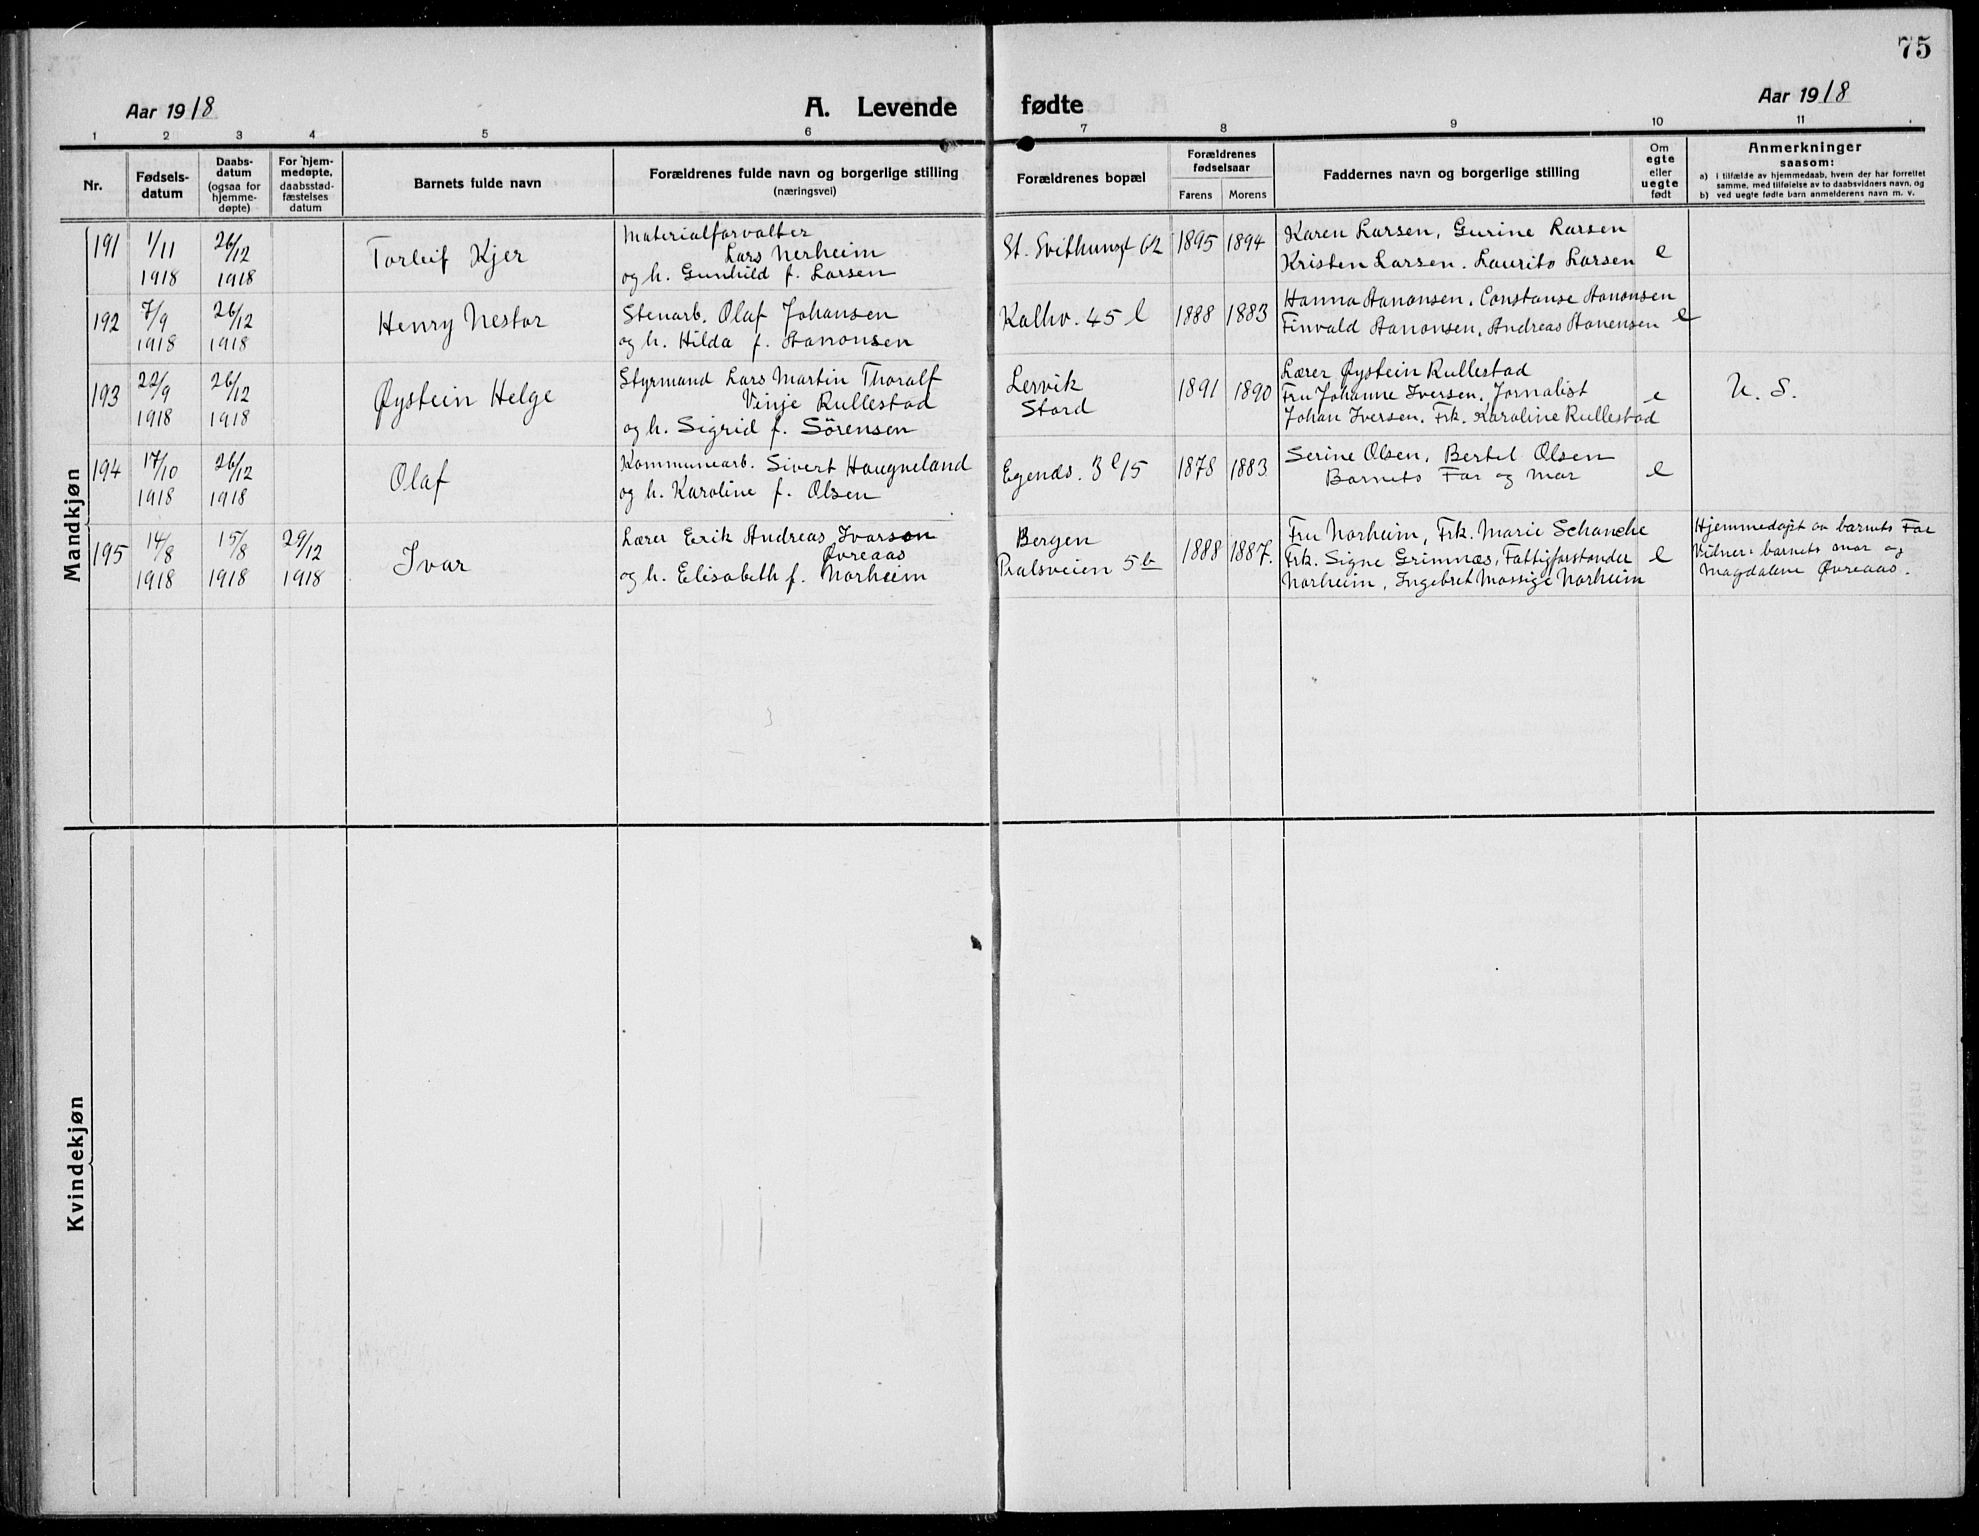 75
Aar 1918
A. Levende fødte
Aar 1918
1 2 3 4 5 6 7 8 9 10 11
Nr.
Fødsels-
datum
Daabs-
datum
(ogsaa for
hjemme-
døpte)
For hjem-
medøpte,
daabsstad-
fæstelses
datum
Barnets fulde navn
Forældrenes fulde navn og borgerlige stilling
(næringsvei)
Forældrenes bopæl
Forældrenes
fødselsaar
Farens Morens
Faddernes navn og borgerlige stilling
Om
egte
eller
uegte
født
Anmerkninger
saasom:
a) i tilfælde av hjemmedaab, hvem der har forrettet
samme, med tilføielse av to daabsvidners navn, og
b) ved uegte fødte barn anmelderens navn m. v.
Mandkjøn
191
1/11
1918
26/12
1918
Torleif Kjer
Materialforvalter
Lars Nerheim
og h. Gunhild f. Larsen
St. Svithunsgt 62
1895 1894
Karen Larsen, Gurine Larsen
Kristen Larsen. Laurits Larsen
e
192
7/9
1918
26/12
1918
Henry Nestor
Stenarb. Olaf Johansen
og h. Hilda f. Aanonsen
Kalhv. 45 l
1888 1883
Hanna Aanonsen, Constanse Aanonsen
Finvald Aanonsen, Andreas Aanensen
e
193
22/9
1918
26/12
1918
Øystein Helge
Styrmand Lars Martin Thoralf
Vinje Rullestad
og h. Sigrid f. Sörensen
Lervik
Stord
1891 1890
Lærer Øystein Rullestad
Fru Johanne Iversen, Jornalist
Johan Iversen, Frk. Karoline Rullestad
e
U. S.
194
17/10
1918
26/12
1918
Olaf
Kommunearb. Sivert Haugneland
og h. Karoline f. Olsen
Egends. 3 e 15
1878 1883
Serine Olsen, Bertel Olsen
Barnets Far og mor
e
195
14/8
1918
15/8
1918
29/12
1918
Ivar
Lærer Erik Andreas Ivarson
Øvreaas
og h. Elisabeth f. Norheim
Bergen
5 b
1888 1887.
Fru Norheim, Frk. Marie Schanche
Frk. Signe Grimnæs, Fattigforstander
Norheim, Ingebret Mossige Norheim
e
Hjemmedøpt av barnets Far
Vidner: barnets mor og
Magdalene Øvreaas.
Kvindekjøn